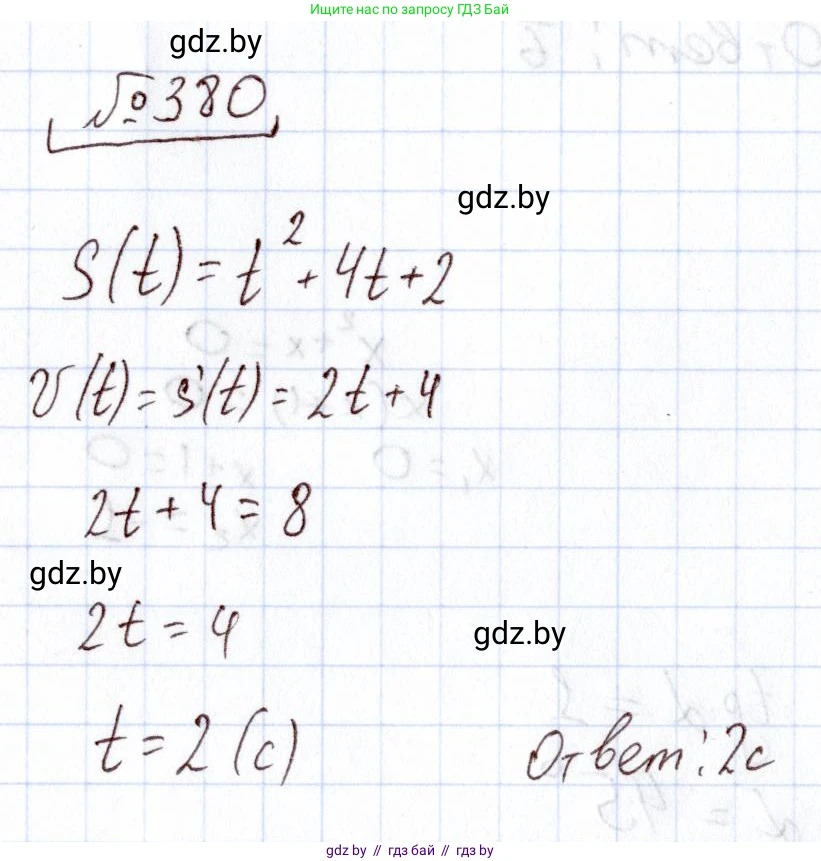 Ищите нас по запросу ГДЗ Бай
gdz.by
№380
gdz.by
S(t) = t² + 4t + 2
v(t) = s'(t) = 2t + 4
2t + 4 = 8
gdz.by
2t = 4
gdz.by
t = 2 (с)
Ответ: 2с
gdz.by // гдз бай // gdz.by